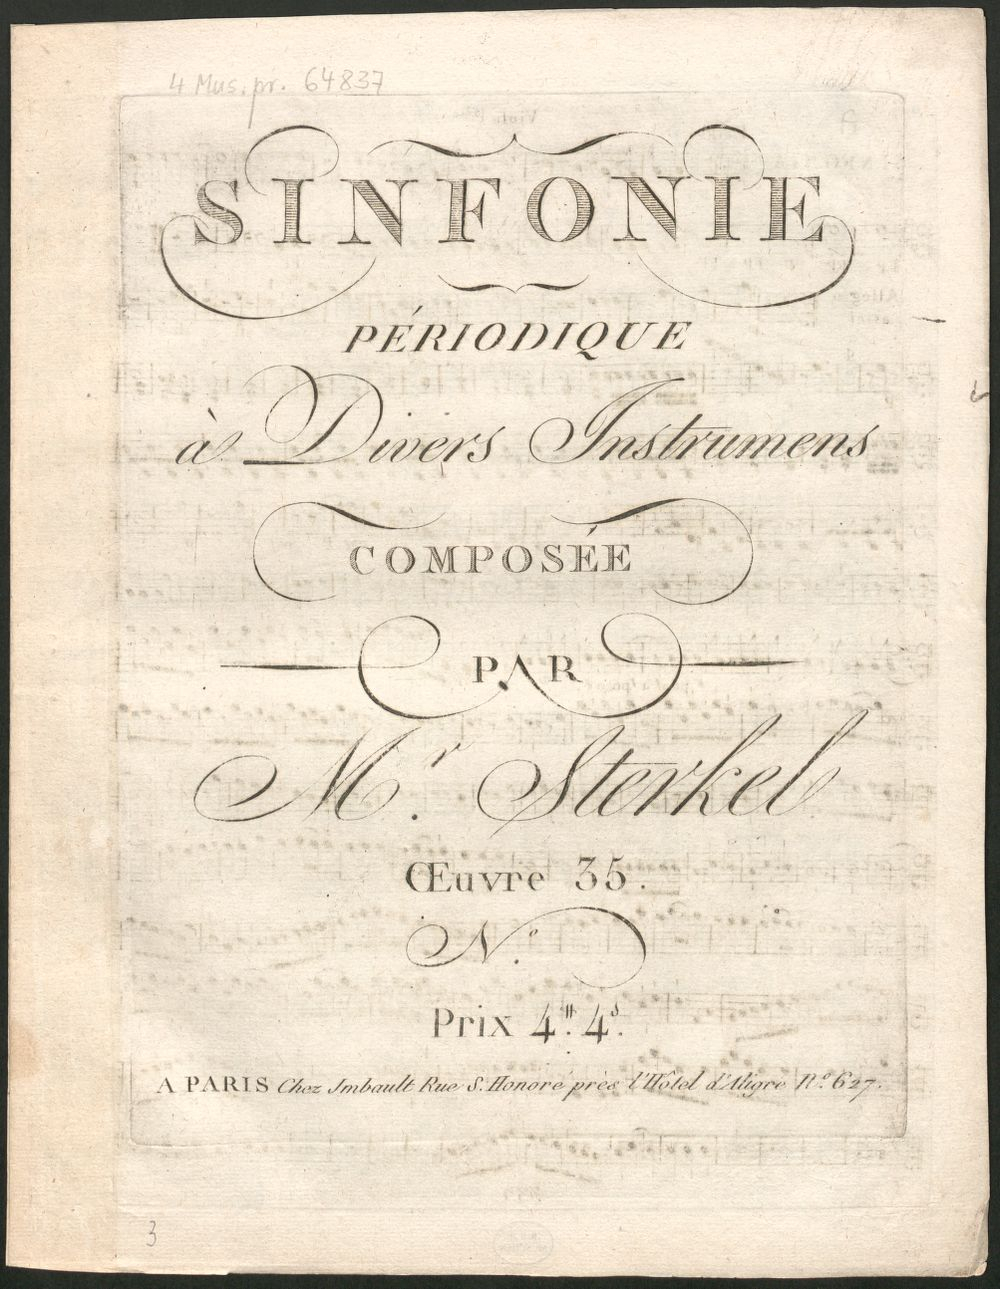 4 Mus. pr. 64837
SINFONIE
PÉRIODIQUE
à Divers Instrumens
COMPOSÉE
PAR
M.r Sterkel
Œuvre 35.
N.o
Prix 4.tt 4.s
A PARIS Chez Imbault Rue S. Honoré près l'Hôtel d'Aligre N.o 627.
3